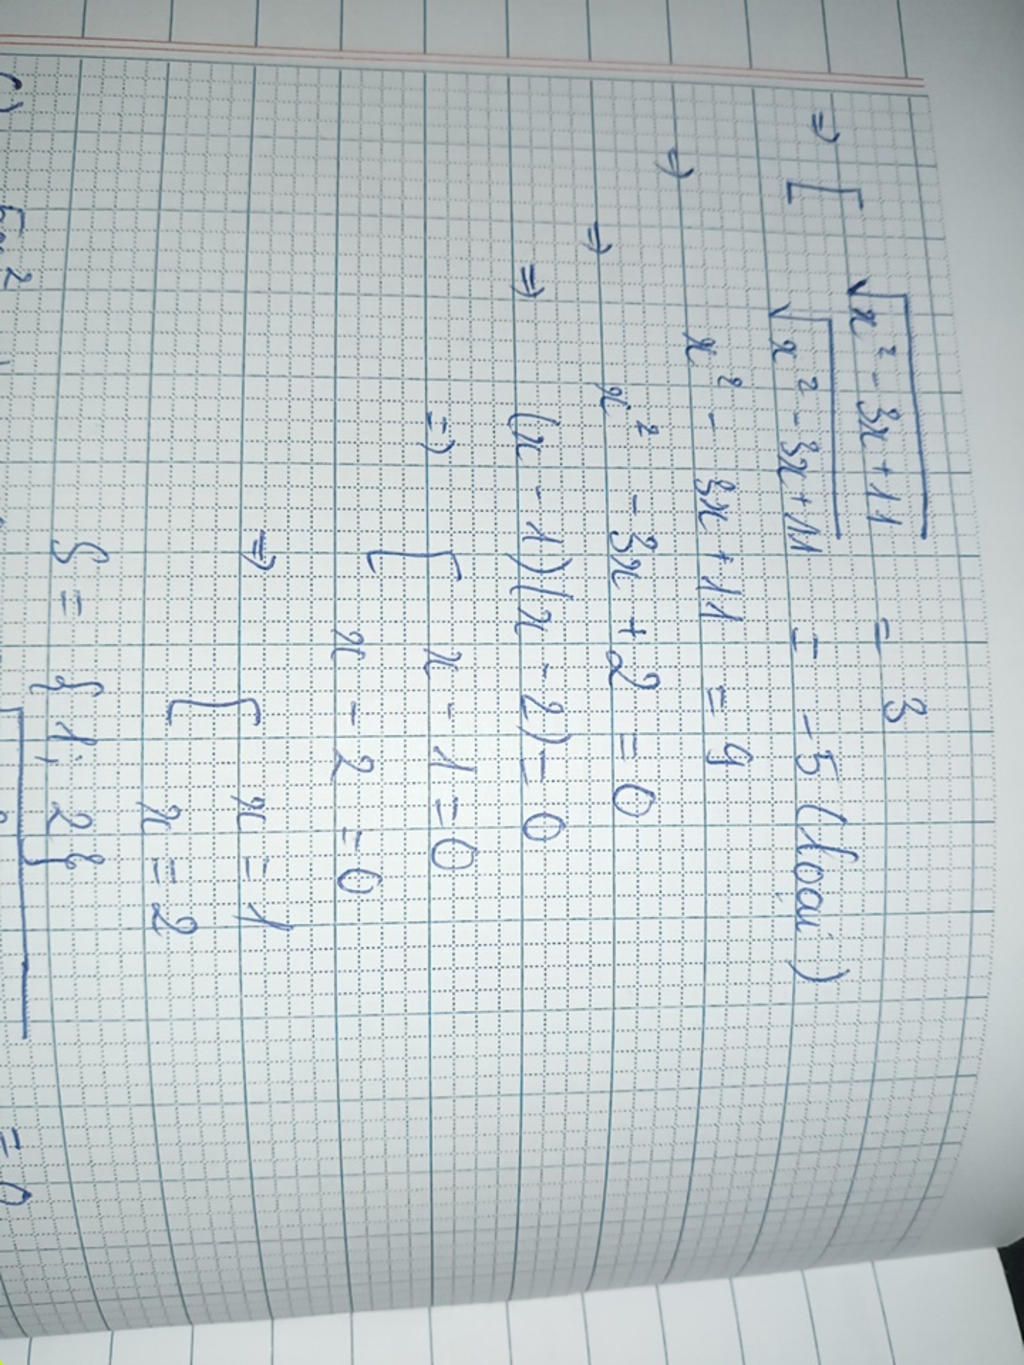 ⇒ [ √x² - 3x + 11 = 3
√x² - 3x + 11 = -5 (loại)
⇒ x² - 3x + 11 = 9
⇒ x² - 3x + 2 = 0
⇒ (x - 1)(x - 2) = 0
⇒ [ x - 1 = 0
x - 2 = 0
⇒ [ x = 1
x = 2
S = { 1; 2 }
c)
= 0